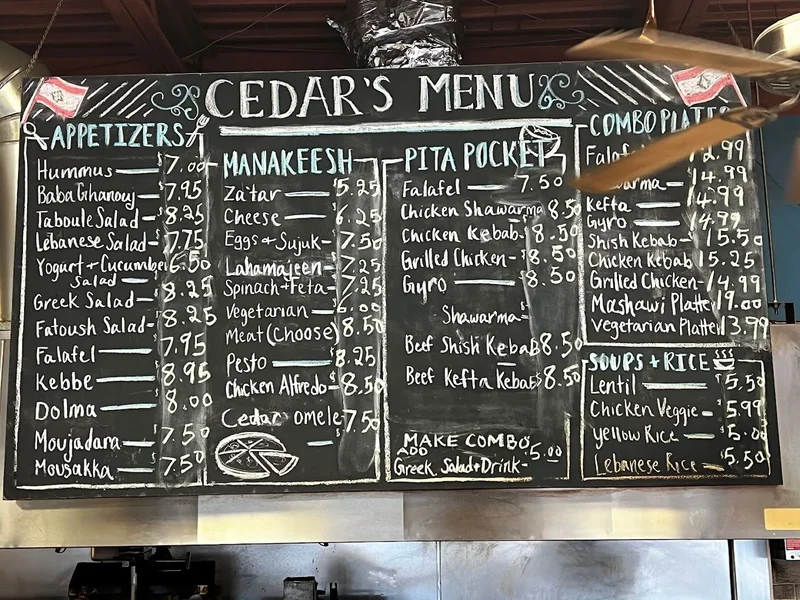 CEDAR'S MENU
APPETIZERS
Hummus — $7.00
Baba Ghanouj — $7.95
Taboule Salad — $8.25
Lebanese Salad — $7.75
Yogurt + Cucumber 6.50
Salad —
Greek Salad — $8.25
Fatoush Salad — $8.25
Falafel — $7.95
Kebbe — $8.95
Dolma — $8.00
Moujadara — $7.50
Mousakka — $7.50
MANAKEESH
Za'tar — $5.25
Cheese — $6.25
Eggs + Sujuk — $7.50
Lahamajeen — $7.25
Spinach + Feta — $7.25
Vegetarian — $6.00
Meat (Choose) $8.50
Pesto — $8.25
Chicken Alfredo — $8.50
Cedar's omele $7.50
PITA POCKET
Falafel — 7.50
Chicken Shawarma 8.50
Chicken Kebab - $8.50
Grilled Chicken - $8.50
Gyro — $8.50
Shawarma -
Beef Shish Kebab $8.50
Beef Kefta Kebab $8.50
MAKE COMBO
ADD $5.00
Greek Salad + Drink -
COMBO
.99
14.99
Kefta — 14.99
Gyro — 4.99
Shish Kebab - 15.50
Chicken Kebab 15.25
Grilled Chicken - 14.99
Mashawi Platter 19.00
Vegetarian Platter 13.99
SOUPS + RICE
Lentil — $5.50
Chicken Veggie - $5.99
Yellow Rice — $5.00
Lebanese Rice — $5.50